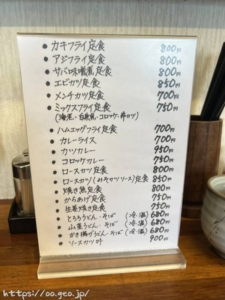 • カキフライ定食 800円
• アジフライ定食 800円
• サバ味噌煮定食 800円
• エビカツ定食 850円
• メンチカツ定食 700円
• ミックスフライ定食 750円
(海老・白身魚・コロッケ・串カツ)
• ハムエッグフライ定食 700円
• カレーライス 700円
• カツカレー 750円
• コロッケカレー 750円
• ロースカツ定食 800円
• ロースカツ(みそカツソース)定食 850円
• 焼き魚定食 800円
• からあげ定食 750円
• 生姜焼き定食 750円
• とろろうどん・そば (冷・温) 680円
• 山菜うどん・そば (冷・温) 680円
• かき揚げうどん・そば (冷・温) 680円
• ソースカツ丼 900円
https://oo.geo.jp/